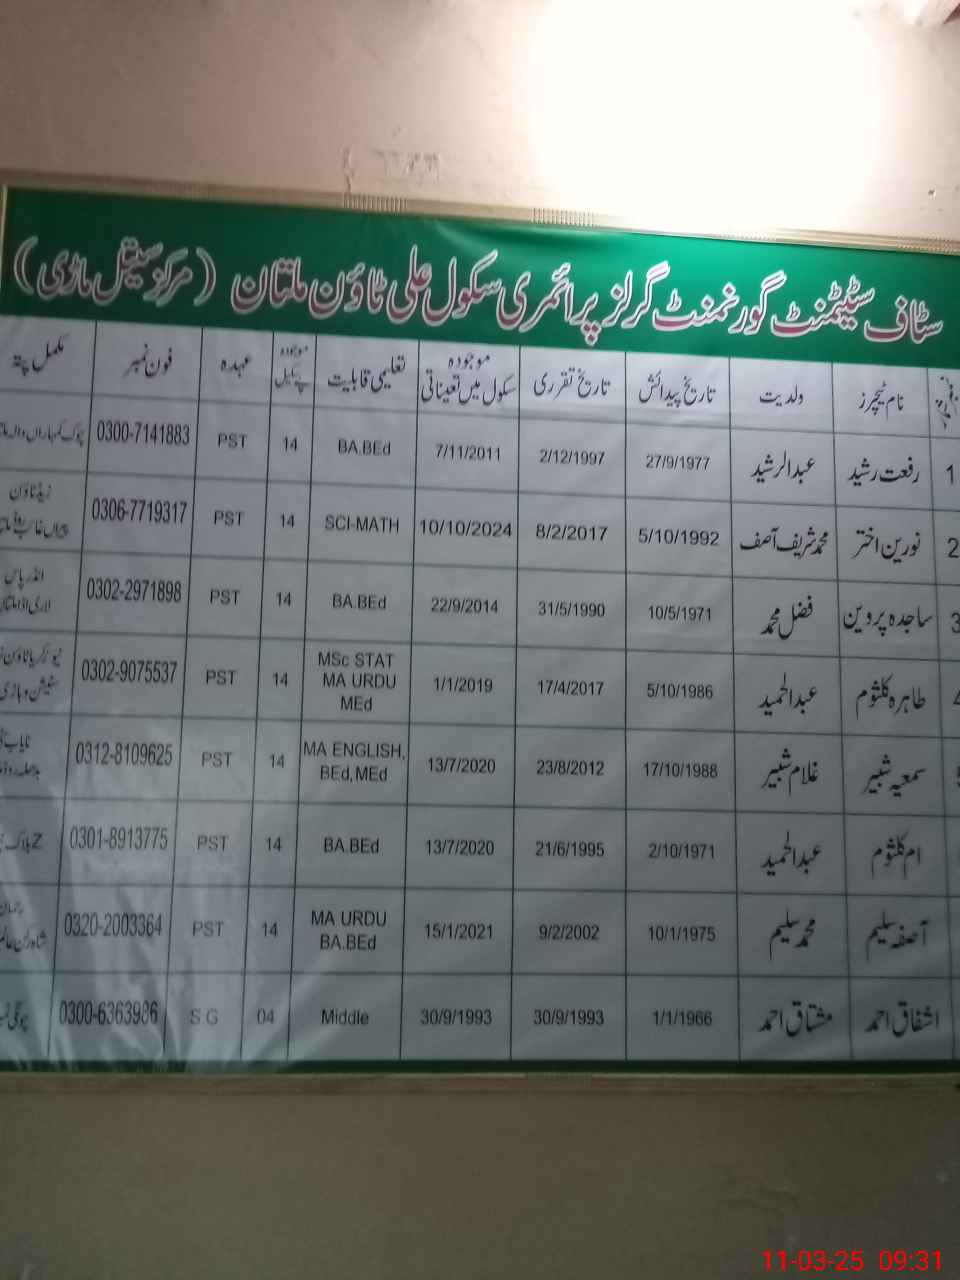 سٹاف سٹیٹمنٹ گورنمنٹ گرلز پرائمری سکول علی ٹاؤن ملتان (مرکز سیتل ماڑی)
نام ٹیچرز ولدیت تاریخ پیدائش تاریخ تقرری موجودہ سکول میں تعیناتی تعلیمی قابلیت موجودہ پے سکیل عہدہ فون نمبر مکمل پتہ
1 رفعت رشید عبدالرشید 27/9/1977 2/12/1997 7/11/2011 BA.BEd 14 PST 0300-7141883 چوک کمہاراں والہ
2 نورین اختر محمد شریف آصف 5/10/1992 8/2/2017 10/10/2024 SCI-MATH 14 PST 0306-7719317 زیڈ ٹاؤن
3 ساجدہ پروین فضل محمد 10/5/1971 31/5/1990 22/9/2014 BA.BEd 14 PST 0302-2971898 انڈر پاس
لاری اڈا
طاہرہ کلثوم عبدالحمید 5/10/1986 17/4/2017 1/1/2019 MSc STAT MA URDU MEd 14 PST 0302-9075537 نیو زکریا ٹاؤن
سمعیہ شبیر غلام شبیر 17/10/1988 23/8/2012 13/7/2020 MA ENGLISH, BEd,MEd 14 PST 0312-8109625
ام کلثوم عبدالحمید 2/10/1971 21/6/1995 13/7/2020 BA.BEd 14 PST 0301-8913775 Z بلاک
آصفہ سلیم محمد سلیم 10/1/1975 9/2/2002 15/1/2021 MA URDU BA.BEd 14 PST 0320-2003364
اشفاق احمد مشتاق احمد 1/1/1966 30/9/1993 30/9/1993 Middle 04 S.G 0300-6363986
11-03-25 09:31